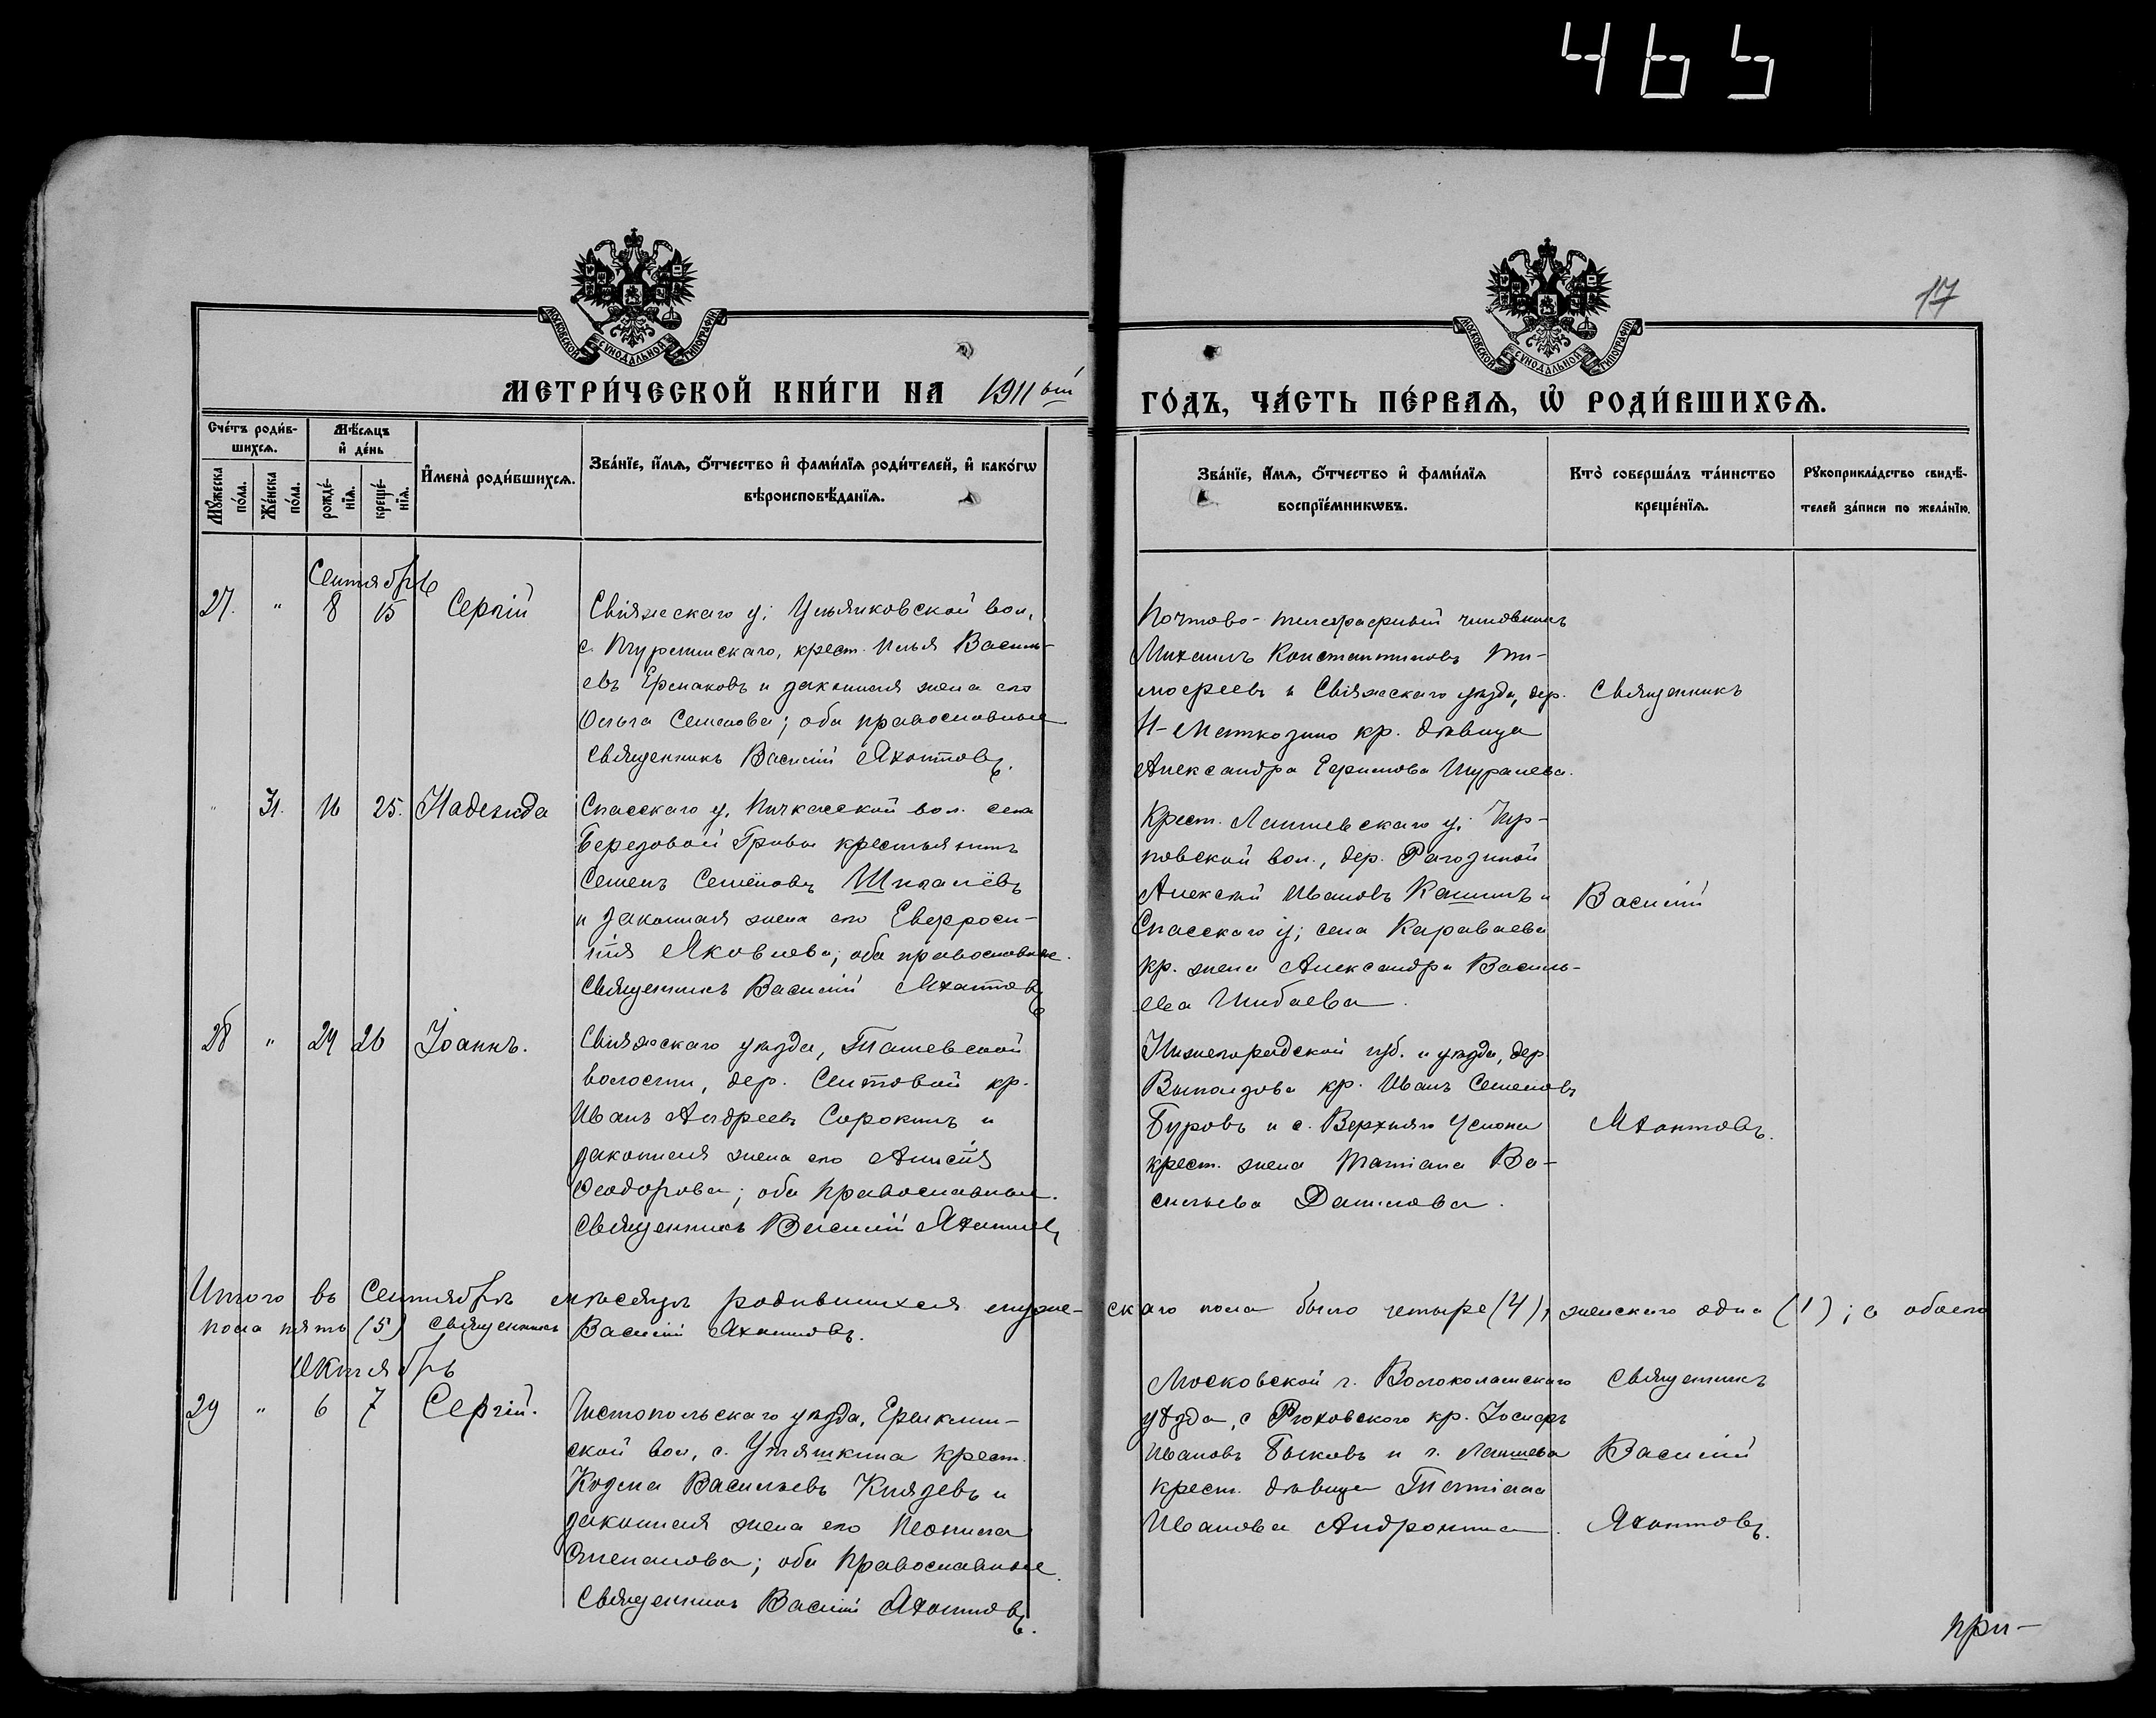 465
17
МОСКОВСКОЙ СѴНОДАЛЬНОЙ ТИПОГРАФІИ
МЕТРИ́ЧЕСКОЙ КНИ́ГИ НА 1911 ый
МОСКОВСКОЙ СѴНОДАЛЬНОЙ ТИПОГРАФІИ
ГО́ДЪ, ЧА́СТЬ ПЕ́РВАѦ, Ѿ РОДИ́ВШИХСѦ.
Сче́тъ роди́в-
шихсѧ.
Мѹ́жеска
по́ла.
Же́нска
по́ла.
Мѣ́сѧцъ
и҆ де́нь
рожде́-
нїѧ.
креще́-
нїѧ.
И҆мена̀ роди́вшихсѧ.
Зва́нїе, и҆́мѧ, ѻ҆́тчество и҆ фами́лїѧ роди́телей, и҆ како́гѡ
вѣроисповѣ́данїѧ.
Зва́нїе, и҆́мѧ, ѻ҆́тчество и҆ фами́лїѧ
воспрїе́мникѡвъ.
Кто̀ соверша́лъ та́инство
креще́нїѧ.
Рꙋкоприкла́дство свидѣ́-
телей за́писи по жела́нїю.
Сентябрь
27. " 8 15 Сергій
Свіяжскаго у; Ульянковской вол.,
евъ Ермаковъ и законная жена его
Ольга Семенова; оба православные
Священникъ Василій Яхонтовъ.
Почтово-телеграфный чиновникъ
Михаилъ Константиновъ Ти-
мофеевъ и Свіяжскаго уѣзда, дер.
кр. дѣвица
Александра Ефимова
Священникъ
" 31. 16 25. Надежда
Спасскаго у, вол. села
Березовой Гривы крестьянинъ
Семенъ Семёновъ
и законная жена его Евфроси-
нія Яковлева; оба православные.
Священникъ Василій Яхонтовъ
Крест. Лаишевскаго у;
вол., дер. Рагозиной
Алексѣй Ивановъ Кашинъ и
Спасскаго у; села Караваева
кр. жена Александра Василь-
ева Шибаева.
Василій
28 " 24 26 Іоаннъ.
Свіяжскаго уѣзда, Ташевской
волости, дер. Сеитовой кр.
Иванъ Андреевъ Сорокинъ и
законная жена его Анисія
Ѳеодорова; оба православные.
Священникъ Василій Яхонтовъ
Нижегородской губ. и уѣзда, дер
Выползова кр. Иванъ Семеновъ
Буровъ и с. Верхняго Услона
крест. жена Татіана Ва-
сильева Данилова.
Яхонтовъ.
Итого въ Сентябрѣ мѣсяцѣ родившихся муже-
скаго пола было четыре (4), женскаго одна (1); а обоего
пола пять (5) Священникъ Василій Яхонтовъ.
Октябрь
29 " 6 7 Сергій.
Чистопольскаго уѣзда, Ерыклин-
ской вол, с. Утяшкина крест.
Козма Васильевъ Князевъ и
законная жена его Неонила
Степанова; оба православные.
Священникъ Василій Яхонтовъ.
Московской г. Волоколамскаго
уѣзда, с Рюховского кр. Іосифъ
Ивановъ Быковъ и г. Лаишева
крест. дѣвица Татіана
Иванова Андронина.
Священникъ
Василій
Яхонтовъ.
при-